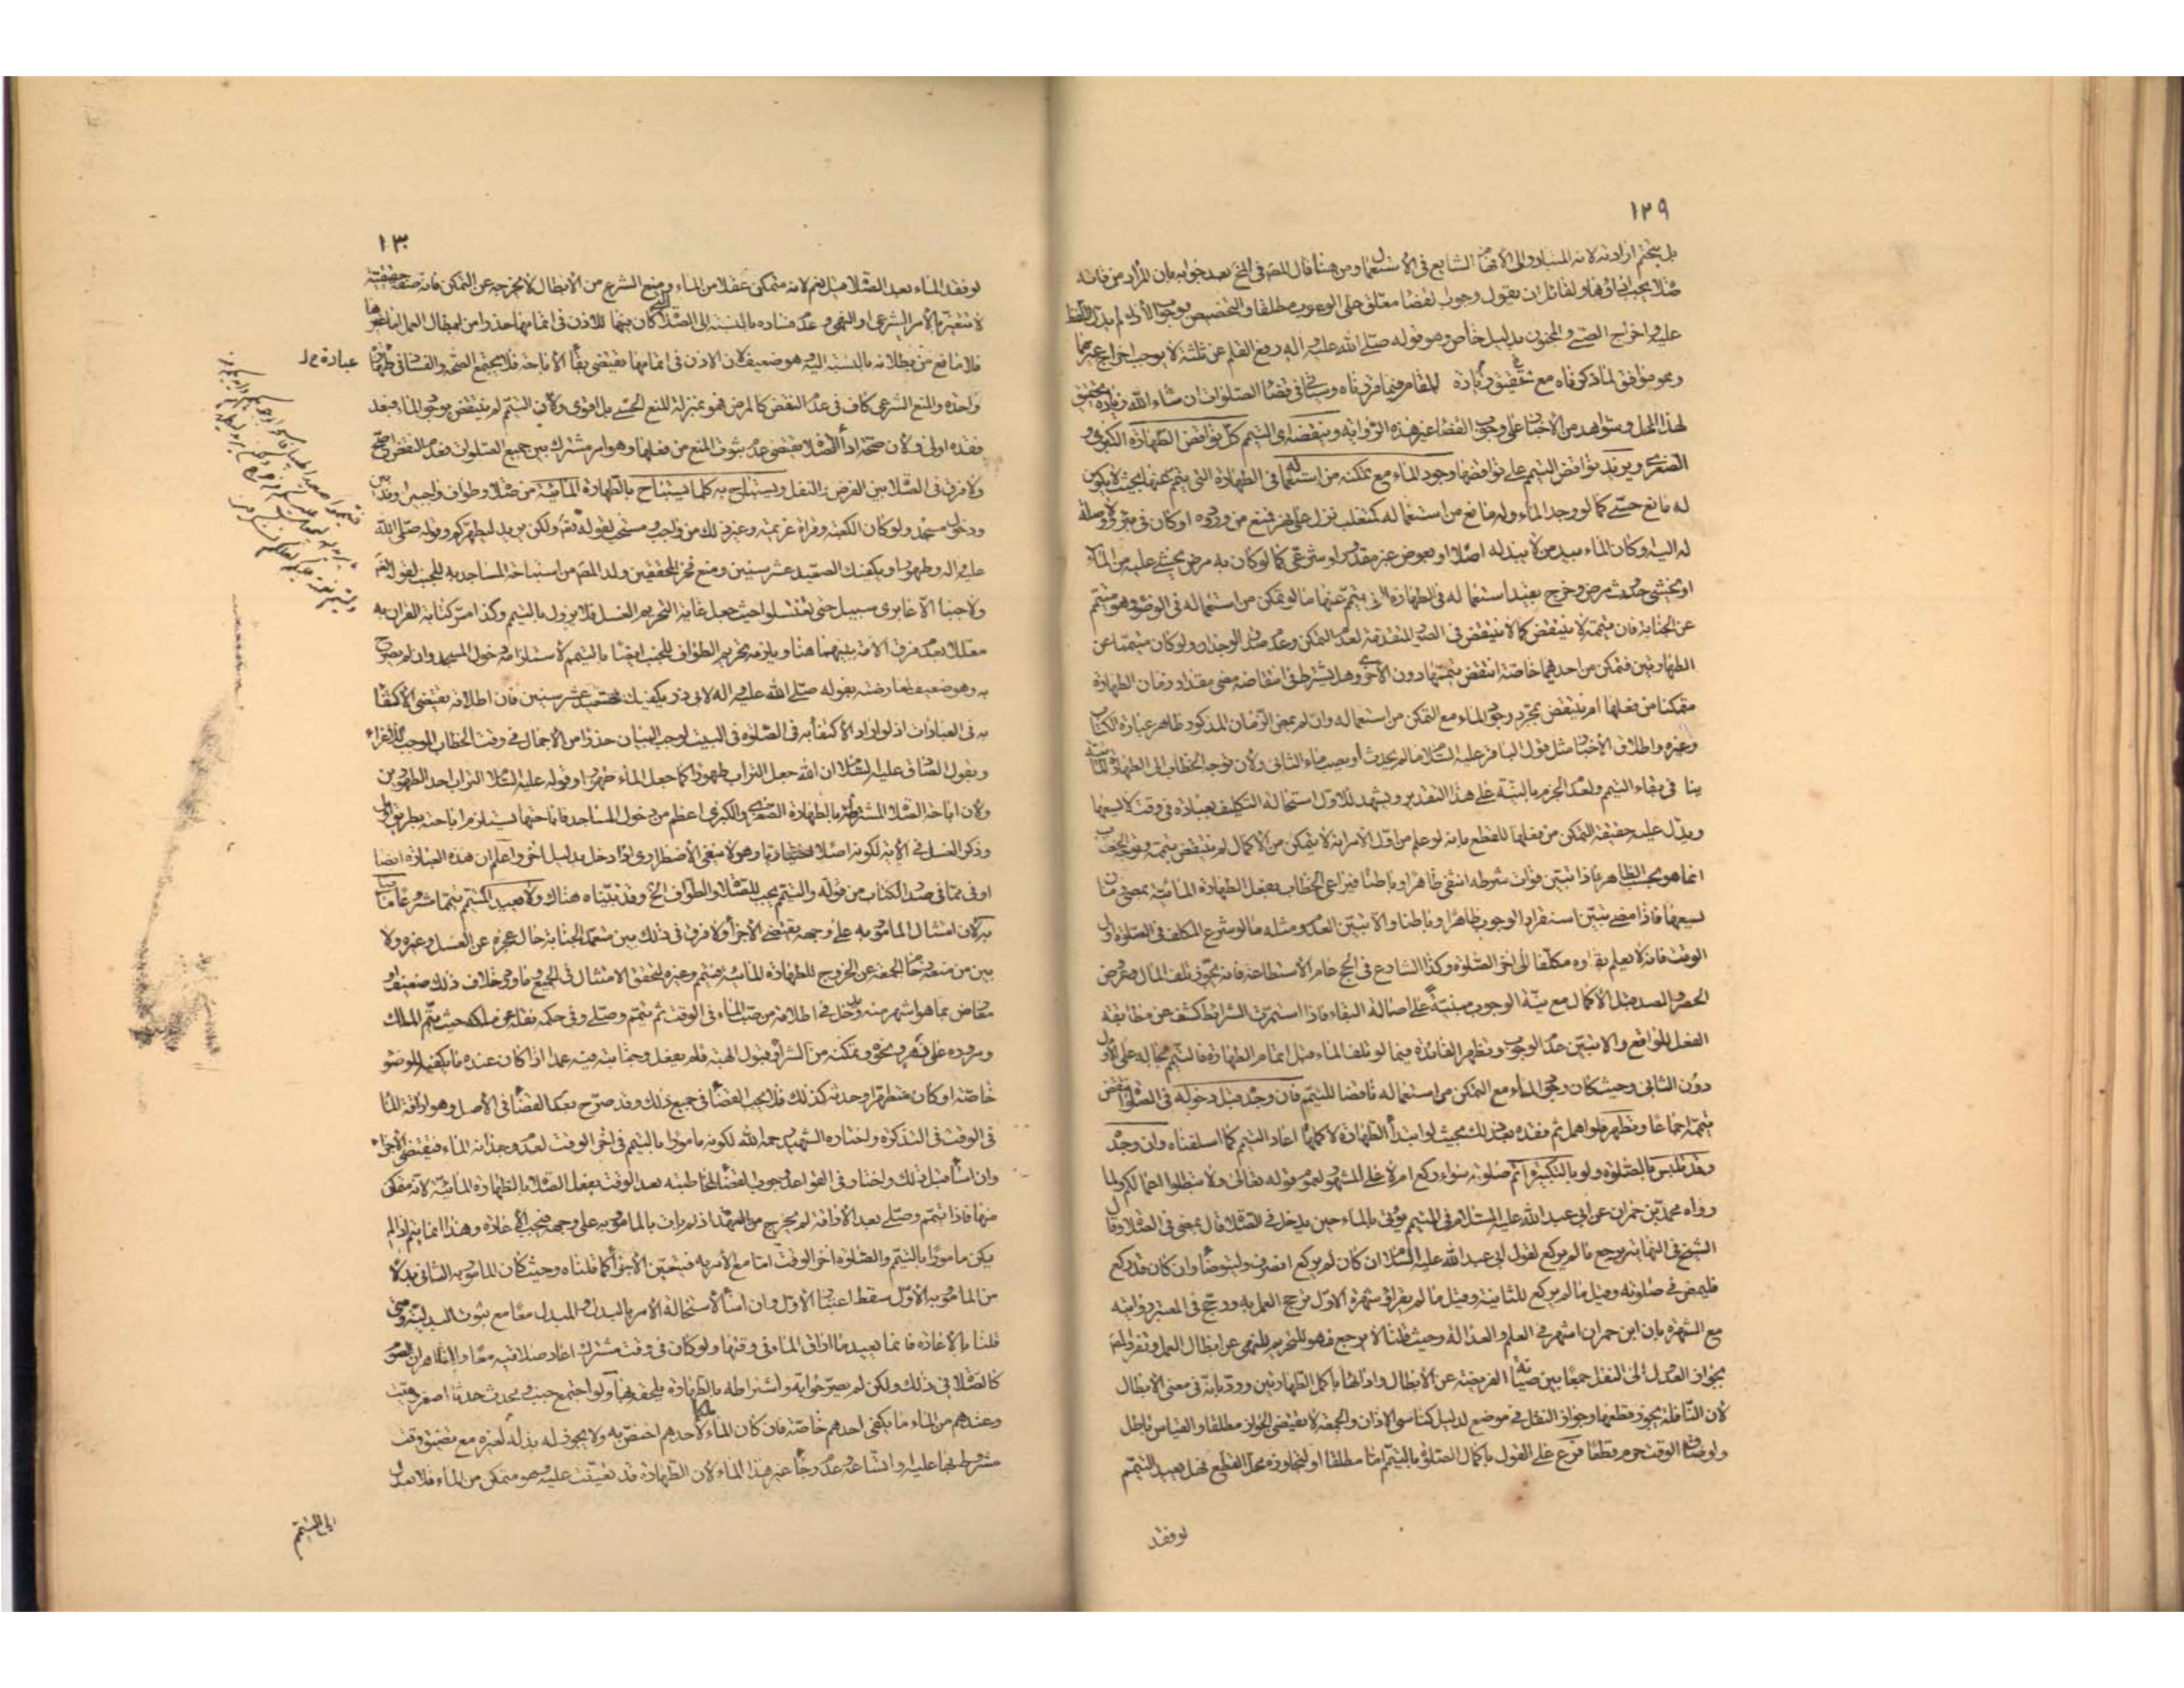 ١٢٩
بل يتحتم ارادته لانه المتبادر والى الافهام الشايع فى الاستعمال ومن هنا قال المصنف فى بعد جوابه بان المراد من فاتته
صلاة يجب اداؤها ولقائل ان يقول وجوب القضاء معلق على الوجوب مطلقا والتخصيص بوجوب الاداء لم يدل اللفظ
عليه واخراج الصبى والمجنون بدليل خاص وهو قوله صلى الله عليه واله رفع القلم عن ثلثة لا يوجب اخراج غيرهما
وهو موافق لما ذكرناه مع تحقيق وزيادة المقام فيما قررناه وسيأتى فى قضاء الصلوات ان شاء الله زيادة تحقيق
لهذا المحل وشواهد من الأخبار على وجوب القضاء غير هذه الرواية وينقضه اى التيمم كل نواقض الطهارة الكبرى و
الصغرى ويزيد نواقض التيمم على نواقضها وجود الماء مع تمكنه من استعماله فى الطهارة التى تيمم عنها بحيث لا يكون
له مانع حسى كما لو وجد الماء وله مانع من استعماله كتغلب نزل على نهر فمنع من وروده او كان فى بئر ولا وصلة
له اليه وكان الماء بيد من لا يبذله اصلا او بعوض غير مقدور او شرعى كما لو كان به مرض يخشى عليه من الماء
او يخشى حدوث مرض وخرج بقيد استعماله فى الطهارة التى تيمم عنها ما لو تمكن من استعماله فى الوضوء وهو متيمم
عن الجنابة فان تيممه لا ينتقض كما لا ينتقض فى الصور المتقدمة لعدم التمكن وعدم صدق الوجدان ولو كان متيمما عن
الطهارتين فتمكن من احديهما خاصة انتقض تيممها دون الأخرى وهل يشترط فى انتقاضه مضى مقدار زمان الطهارة
متمكنا من فعلها ام ينتقض بمجرد وجود الماء مع التمكن من استعماله وان لم يمض الزمان المذكور ظاهر عبارة الكتاب
وغيره واطلاق الأخبار مثل قول الباقر عليه السلام ما لم يحدث أو يصب ماء الثانى ولأن توجه الخطاب الى الطهارة المائية
ينافى بقاء التيمم ولعدم الجزم بالنية على هذا التقدير ويشهد للاول استحالة التكليف بعبادة فى وقت لا يسعها
ويدل عليه حقيقة التمكن من فعلها للقطع بانه لو علم من اول الامر انه لا يتمكن من الاكمال لم ينتقض تيممه وتوجه الخطاب
انما هو بحسب الظاهر فاذا تبين فوات شرطه انتفى ظاهرا وباطنا فيراعى الخطاب بفعل الطهارة المائية بمضى زمان
يسعها فاذا مضى تبين استقرار الوجوب ظاهرا وباطنا والا تبين العدم ومثله ما لو شرع المكلف فى الصلوة اول
الوقت فانه لا يعلم بقاؤه مكلفا الى اخر الصلوة وكذا الشارع فى الحج عام الاستطاعة فانه يجوز تلف المال وعروض
الحصر والصد قبل الاكمال مع نية الوجوب مبنية على اصالة البقاء فاذا استمرت الشرائط كشف عن مطابقة
الفعل للواقع والا تبين عدم الوجوب وتظهر الفائدة فيما لو تلف الماء قبل اتمام الطهارة فالتيمم بحاله على الاول
دون الثانى وحيث كان وجود الماء مع التمكن من استعماله ناقضا للتيمم فان وجد قبل دخوله فى الصلوة انتقض
تيممه اجماعا وتطهر فلو اهمل ثم فقده بعد ذلك بحيث لو ابتدأ الطهارة لاكملها اعاد التيمم كما اسلفناه وان وجد
وقد تلبس بالصلوة ولو بالتكبيرة اتم صلوته سواء ركع ام لا على المشهور لعموم قوله تعالى ولا تبطلوا اعمالكم ولما
رواه محمد بن حمران عن ابى عبد الله عليه السلام فى المتيمم يؤتى بالماء حين يدخل فى الصلاة قال يمضى فى الصلاة وقال
الشيخ فى النهاية يرجع ما لم يركع لقول ابى عبد الله عليه السلام ان كان لم يركع انصرف وليتوضأ وان كان قد ركع
فليمض فى صلوته وقيل ما لم يركع للثانية وقيل ما لم يقرأ وشهرة الاول ترجح العمل به ورجح فى المعتبر روايته
مع الشهرة بان ابن حمران اشهر فى العلم والعدالة وحيث قلنا لا يرجع فهو للتحريم للنهى عن ابطال العمل
بجواز العدول الى النفل جمعا بين صيانة الفريضة عن الابطال وادائها باكمل الطهارتين ورد بانه فى معنى الابطال
لان النافلة يجوز قطعها وجواز النقل فى موضع لدليل كناسى الاذان والجمعة لا يقتضى الجواز مطلقا والقياس باطل
ولو ضاق الوقت حرم قطعا فرع على القول باكمال الصلوة بالتيمم اما مطلقا او لتجاوزه محل القطع فهل يعيد التيمم
لو فقد
١٣٠
لو فقد الماء بعد الصلاة قيل نعم لانه متمكن عقلا من الماء ومنع الشرع من الابطال لا يخرجه عن التمكن فانه صفة حقيقية
لا تتغير بالامر الشرعى او النهى وعدم فساده بالنسبة الى الصلاة التى كان بها للاذن فى اتمامها حذرا من ابطال العمل اما غيرها
فلا مانع من بطلانه بالنسبة اليه وهو ضعيف لان الاذن فى اتمامها يقتضى بقاء الاباحة فلا يجتمع الصحة والفساد فى طهارة
واحدة والمنع الشرعى كاف فى عدم النقض كالمرض فهو بمنزلة المنع الحسى بل اقوى ولأن التيمم لم ينتقض بوجود الماء فبعد
فقده اولى ولأن صحة اداء الصلاة يقتضى عدم ثبوت المنع من فعلها وهو امر مشترك بين جميع الصلوات فعدم النقض اصح
ولا فرق فى الصلاة بين الفرض والنفل ويستباح به كلما يستباح بالطهارة المائية من صلاة وطواف واجبين وندبين
ودخول مسجد ولو كان الكعبة وقراءة عزيمة وغير ذلك من واجب ومستحب لقوله تعالى ولكن يريد ليطهركم وقوله صلى الله
عليه واله وطهورا ويكفيك الصعيد عشر سنين ومنع فخر المحققين ولد المصنف من استباحة المساجد به للجنب لقوله تعالى
ولا جنبا الا عابرى سبيل حتى تغتسلوا حيث جعل غاية التحريم الغسل فلا يزول بالتيمم وكذا مس كتابة القران به
معللا بعدم فرق الامة بينهما هنا ويلزمه تحريم الطواف للجنب ايضا بالتيمم لاستلزامه دخول المسجد وان لم يصرح
به وهو ضعيف لمعارضته بقوله صلى الله عليه واله لابى ذر يكفيك الصعيد عشر سنين فان اطلاقه يقتضى الاكتفاء
به فى العبادات اذ لو اراد الاكتفاء به فى الصلوة فى البيت لوجب البيان حذرا من الاجمال فى وقت الخطاب الموجب للاغراء
وبقول الصادق عليه السلام ان الله جعل التراب طهورا كما جعل الماء طهورا وقوله عليه السلام التراب احد الطهورين
ولان اباحة الصلاة المشترطة بالطهارة الصغرى والكبرى اعظم من دخول المساجد فاباحتها يستلزم اباحته بطريق اولى
وذكر الغسل فى الاية لكونه اصلا اختياريا وهو لا ينفى الاضطرارى اذا دخل بدليل اخر واعلم ان هذه العبارة ايضا
اوفى مما فى صدر الكتاب من قوله والتيمم يجب للصلاة والطواف الخ وقد بيناه هناك ولا يعيد المتيمم تيمما شرعيا ما صلاه
به لان امتثال المأمور به على وجهه يقتضى الاجزاء ولا فرق فى ذلك بين متعمد الجنابة حال عجزه عن الغسل وغيره ولا
بين من منعه زحام الجمعة عن الخروج للطهارة المائية فتيمم وغيره لتحقق الامتثال فى الجميع وما روى خلاف ذلك ضعيف او
معارض بما هو اشهر منه ودخل فى اطلاقه من صب الماء فى الوقت ثم تيمم وصلى وفى حكمه نقله عن ملكه حيث يتم الملك
ومروره على نهر ونحوه وتمكنه من الشراء وقبول الهبة فلم يفعل وجنابته فيه عمدا اذا كان عنده ما يكفيه للوضوء
خاصة او كان متطهرا وحدثه كذلك فلا يجب القضاء فى جميع ذلك وقد صرح بعدم القضاء فى الاصل وهو اراقة الماء
فى الوقت فى التذكرة واختاره الشهيد رحمه الله لكونه مامورا بالتيمم فى اخر الوقت لعدم وجدانه الماء فيقتضى الاجزاء
وان اساء قبل ذلك واختار فى القواعد وجوب القضاء لمخاطبته بعد الوقت بفعل الصلاة بالطهارة المائية لانه متمكن
منها فاذا تيمم وصلى بعد الاراقة لم يخرج من العهدة اذ لم يات بالمامور به على وجهه فتجب الاعادة وهذا انما يتم اذا لم
يكن مامورا بالتيمم والصلوة اخر الوقت اما مع الأمر به فيتعين الاجزاء كما قلناه وحيث كان المامور به الثانى بدلا
من المامور به الأول سقط اعتبار الاول وان اساء لاستحالة الامر بالبدل والمبدل معا مع ثبوت البدلية ومتى
قلنا بالاعادة فانما يعيد ما اراق الماء فى وقتها ولو كان فى وقت مشترك اعاد صلاتيه معا والظاهر ان الصوم
كالصلاة فى ذلك ولكن لم يصرحوا به واشتراطه بالطهارة يلحقه بها ولو اجتمع جنب ومحدث حدثا اصغر وميت
وعندهم من الماء ما يكفى احدهم خاصة فان كان الماء ملكا لأحدهم اختص به ولا يجوز له بذله لغيره مع تضيق وقت
مشروط بها عليه واتساعه وعدم رجاء غير هذا الماء لان الطهارة قد تعينت عليه وهو متمكن من الماء فلا يعدل
الى التيمم